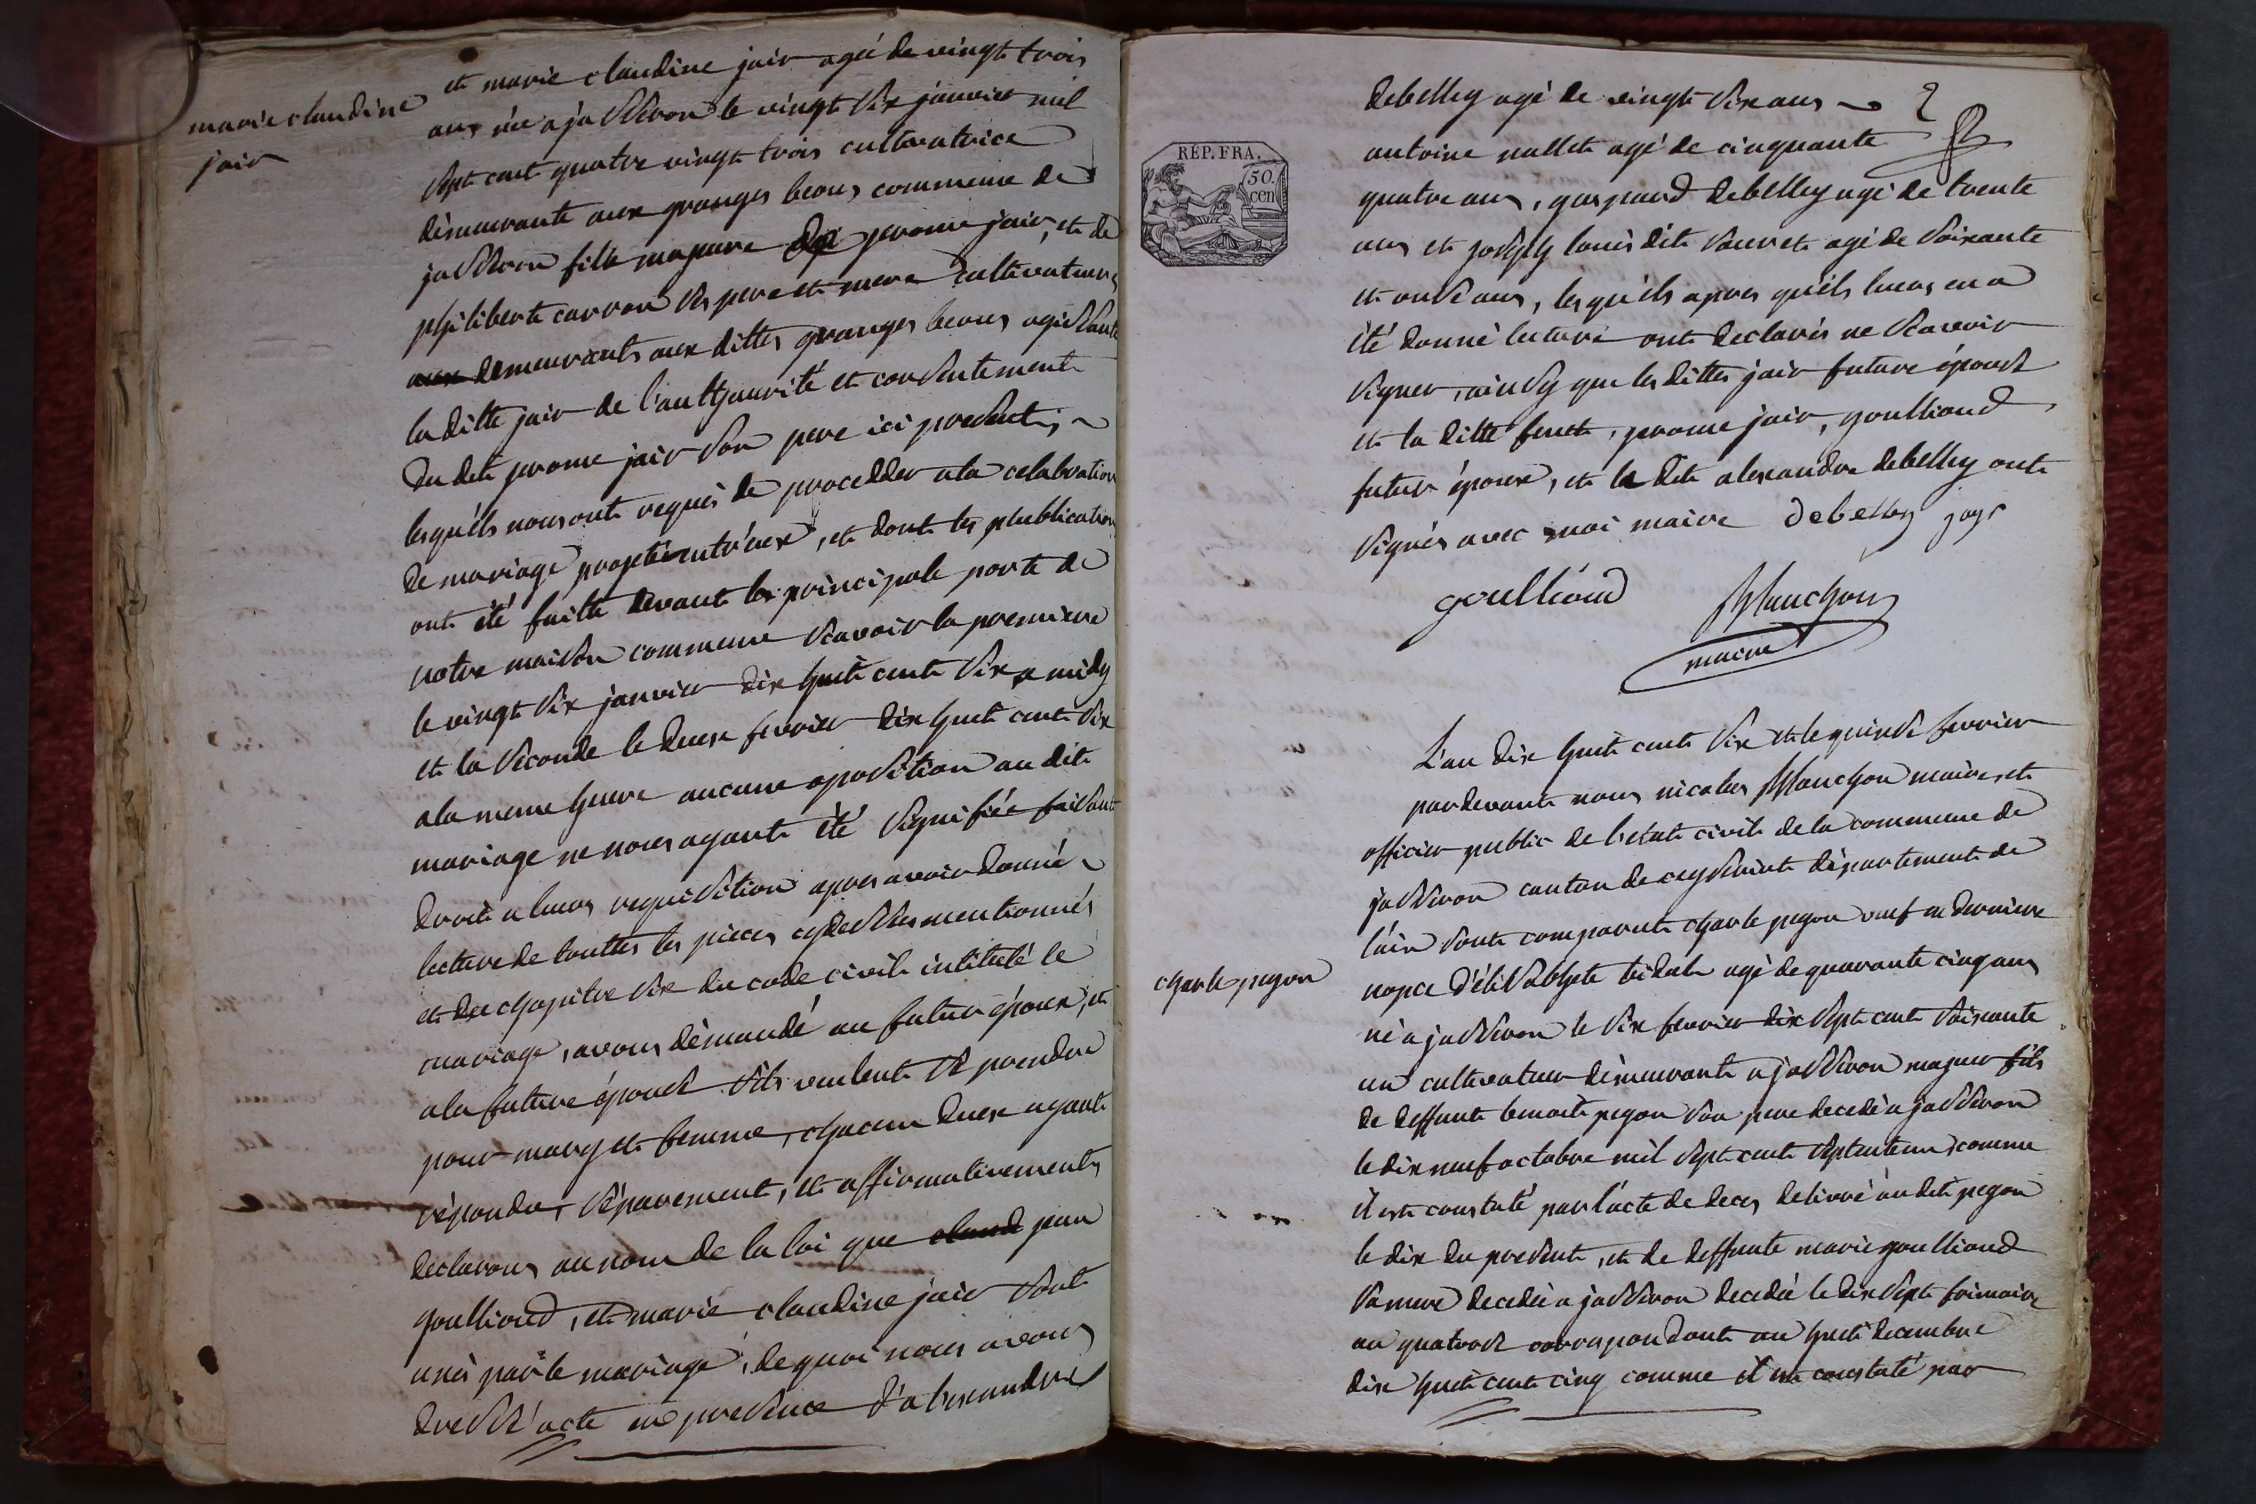 marie claudine
jair
et marie claudine jair agé de vingt trois
ans née a jasseron le vingt six janvier mil
sept cent quatre vingt trois cultivatrice
démeurante aux granges beous commune de
jasseron fille majeure de jerome jair, et de
philiberte carron ses pere et mere cultivateurs
aux demeurants aux dittes granges beous agissante
la ditte jair de l'authaurité et consentement
du dit jerome jair son pere ici present,
lesquels nous ont requis de procedder a la celabration
de mariage projetté entr'eux, et dont les plublications
ont été faitte devant la principale porte de
notre maison commune scavoir la premiere
le vingt six janvier dix huit cent six a midy
et la seconde le deux fevrier dix huit cent six
a la meme heure aucune oposition au dit
mariage ne nous ayant été signifiée faisant
droit a leurs requisition apres avoir donné
lecture de touttes les pieces cydessus mentionnés
et du chapitre six du code civil intitulé le
mariage, avons démandé au futur époux, et
a la future épouse s'ils veulent se prendre
pour mary et femme, chacun deux ayant
répondu séparement, et affirmativement
declarons au nom de la loi que claud jean
goulliond, et marie claudine jair sont
unis par le mariage, de quoi nous avons
dressé acte en presence d'alexandre
RÉP. FRA.
50.
cen
2
debelley agé de vingt six ans
antoine nallet agé de cinquante
quatre ans, gaspard debelley agé de trente
ans et joseph louis dit sauret agé de soixante
et onse ans, lesquels apres quils leurs en a
été donné lecture ont declarés ne scavoir
signer, ainsy que les dittes jair future épouse
et la ditte feret, jerome jair, goulliond
futur époux, et le dit alexandre debelley ont
signés avec moi maire debelley jayr
goullioud planchon
maire
L'an dix huit cent six et le quinse fevrier
pardevant nous nicolas planchon maire, et
officier public de l'etat civil de la commune de
jasseron canton de ceyseriat département de
l'ain sont comparut charle pegon veuf en derniere
charle pegon
nopce d'élisabhete tridale agé de quarante cinq ans
né a jasseron le six fevrier dix sept cent soixante
un cultivateur démeurant a jasseron majeur fils
de deffunt benoit pegon son pere decedé a jasseron
le dix neuf octobre mil sept cent septante un comme
il est constaté par l'acte de deces delivré audit pegon
le dix du present, et de deffunte marie goulliond
sa mere decedée a jasseron decedée le dix sept frimaire
an quatorse correspondant au huit decembre
dix huit cent cinq comme il est constaté par